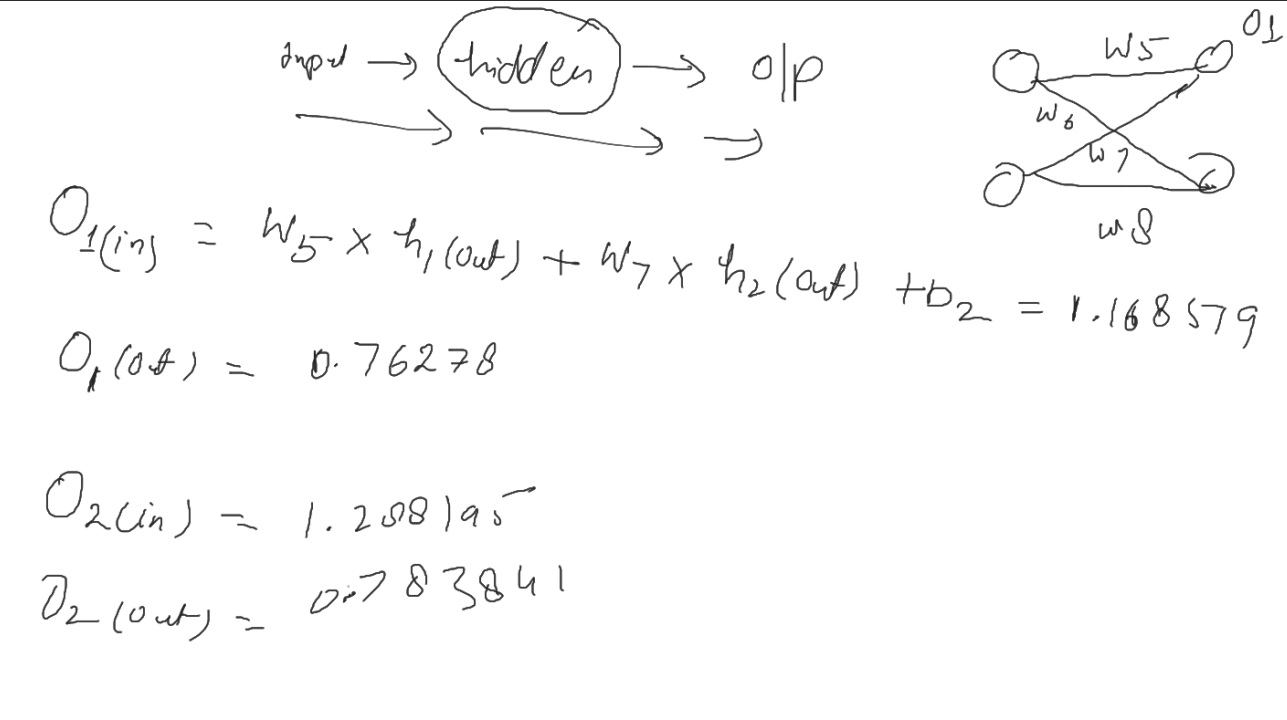 Input → hidden → O/P
O1
W5
W6
W7
W8
O1(in) = W5 × h1(out) + W7 × h2(out) + b2 = 1.168579
O1(out) = 0.76278
O2(in) = 1.288195
O2(out) = 0.783841